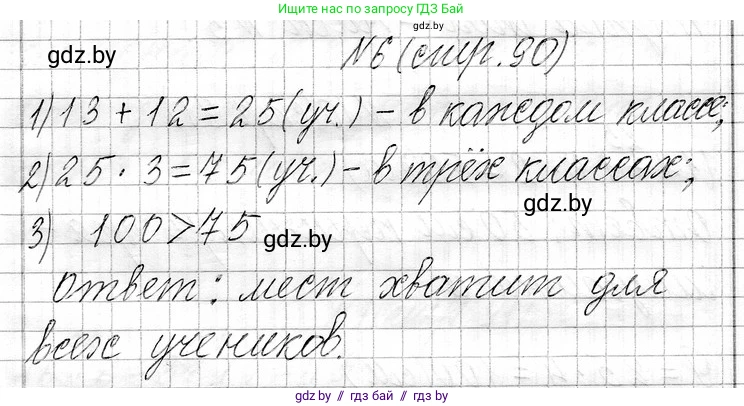 Ищите нас по запросу ГДЗ БАЙ
gdz.by
gdz.by
№6 (стр. 90)
1) 13 + 12 = 25 (уч.) - в каждом классе;
2) 25 · 3 = 75 (уч.) - в трёх классах;
gdz.by
3) 100 > 75
gdz.by
Ответ: мест хватит для
всех учеников.
gdz.by // гдз бай // gdz.by // гдз бай // gdz.by